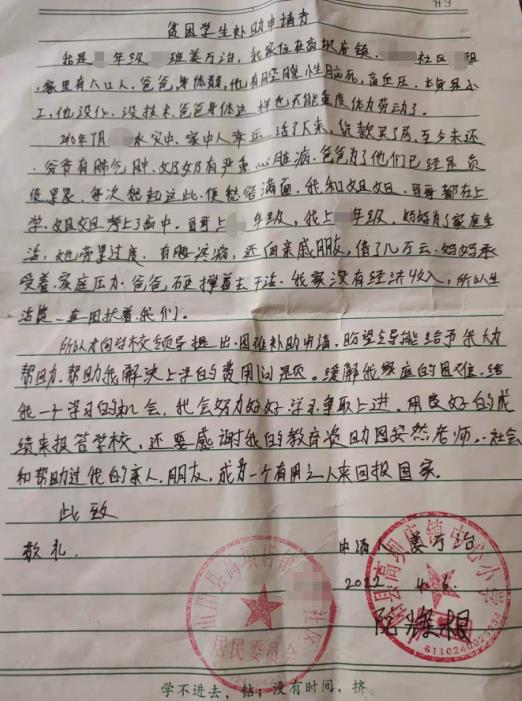 贫困学生补助申请书
我是 年级 班姜万治,我家住在高坝店镇 社区 组
,家里有六口人,爸爸,身体弱,他有腔隙性脑死,高血压,本身是小
工,他没什么没技术,爸爸身体这样也不能重度体力劳动了.
2010年7月 水灾中,家中人幸运活了下来,贷款买了房,至今未还
,爷爷有肺气肿,奶奶有严重心脏病,爸爸为了他们已经是负
债累累,每次想起这些,便愁容满面,我和姐姐,哥哥都在上
学,姐姐考上了高中,哥哥上 年级,我上 年级,妈妈为了家庭生
活,她劳累过度,有腰疼病,还向亲戚朋友,借了几万元.妈妈承
受着家庭压力.爸爸硬撑着去干活.我家没有经济收入,所以生
活质一直困扰着我们.
所以才向学校领导提出困难补助申请.盼望领导能给予我大力
帮助,帮助我解决上学的费用问题.缓解我家庭的困难,给
我一个学习的机会,我会努力好好学习.争取上进,用良好的成
绩来报答学校,还要感谢我的教育资助 安然老师.社会
和帮助过我的亲人.朋友,成为一个有用之人来回报国家.
此致
敬礼.
申请人 姜万治
2022. 4. 6.
山阳县高坝店镇 社区
居民委员会
山阳县高坝店镇中心小学
学不进去,钻;没有时间,挤。